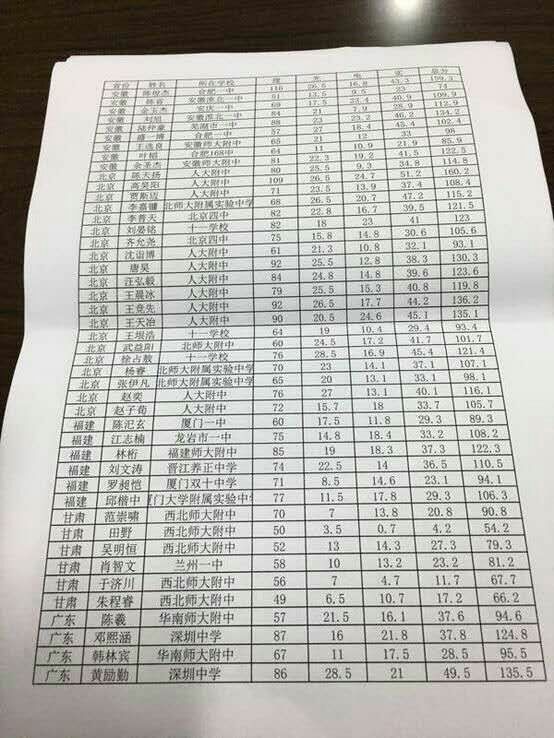 省份 姓名 所在学校 理 光 电 实 总分
安徽 陈俊杰 合肥一中 116 26.5 16.8 43.3 159.3
安徽 陈睿 安徽淮北一中 51 13.5 9.5 23 74
安徽 金玉杰 安庆一中 69 17.5 23.4 40.9 109.9
安徽 刘旭 安徽淮北一中 84 21 7.9 28.9 112.9
安徽 陆梓豪 芜湖市一中 88 23 23.2 46.2 134.2
安徽 盛一博 合肥一中 57 27 18.4 45.4 102.4
安徽 王逸良 安徽师大附中 65 21 12 33 98
安徽 叶韬 合肥168中 64 11 10.9 21.9 85.9
安徽 金圣杰 安徽师大附中 81 22.3 19.2 41.5 122.5
北京 陈天扬 人大附中 80 25.5 9.3 34.8 114.8
北京 高昊阳 人大附中 109 26.5 24.7 51.2 160.2
北京 贾斯迈 人大附中 71 23.5 13.9 37.4 108.4
北京 李嘉镛 北师大附属实验中学 68 26.5 20.7 47.2 115.2
北京 李普天 北京四中 82 22.8 16.7 39.5 121.5
北京 刘晏铭 十一学校 82 18 23 41 123
北京 齐允尧 北京四中 75 15.8 14.8 30.6 105.6
北京 沈诣博 人大附中 61 21.3 10.8 32.1 93.1
北京 唐昊 人大附中 92 25.5 12.8 38.3 130.3
北京 汪弘毅 人大附中 84 24.8 14.8 39.6 123.6
北京 王晨冰 人大附中 79 25.5 15.3 40.8 119.8
北京 王竞先 人大附中 92 26.5 17.7 44.2 136.2
北京 王天冶 人大附中 90 20.5 24.6 45.1 135.1
北京 王垠浩 十一学校 64 19 10.4 29.4 93.4
北京 武益阳 北师大附中 60 24.5 17.2 41.7 101.7
北京 徐占敖 十一学校 76 28.5 16.9 45.4 121.4
北京 杨睿 北师大附属实验中学 70 23 14.1 37.1 107.1
北京 张伊凡 北师大附属实验中学 65 20 13.1 33.1 98.1
北京 赵奕 人大附中 76 27 13.1 40.1 116.1
北京 赵子荀 人大附中 72 15.7 18 33.7 105.7
福建 陈汜玄 厦门一中 60 17.5 11.8 29.3 89.3
福建 江志楠 龙岩市一中 75 14.8 18.4 33.2 108.2
福建 林桁 福建师大附中 85 19 18.3 37.3 122.3
福建 刘文涛 晋江养正中学 74 22.5 14 36.5 110.5
福建 罗昶恺 厦门双十中学 71 8.5 14.6 23.1 94.1
福建 邱楷中 厦门大学附属实验中学 77 11.5 17.8 29.3 106.3
甘肃 范崇啸 西北师大附中 70 7 13.8 20.8 90.8
甘肃 田野 西北师大附中 50 3.5 0.7 4.2 54.2
甘肃 吴明恒 西北师大附中 52 13 14.3 27.3 79.3
甘肃 肖智文 兰州一中 58 10 13.2 23.2 81.2
甘肃 于济川 西北师大附中 56 7 4.7 11.7 67.7
甘肃 朱程睿 西北师大附中 49 6.5 10.7 17.2 66.2
广东 陈羲 华南师大附中 57 21.5 16.1 37.6 94.6
广东 邓熙涵 深圳中学 87 16 21.8 37.8 124.8
广东 韩林宾 华南师大附中 67 11 17.5 28.5 95.5
广东 黄励勤 深圳中学 86 28.5 21 49.5 135.5